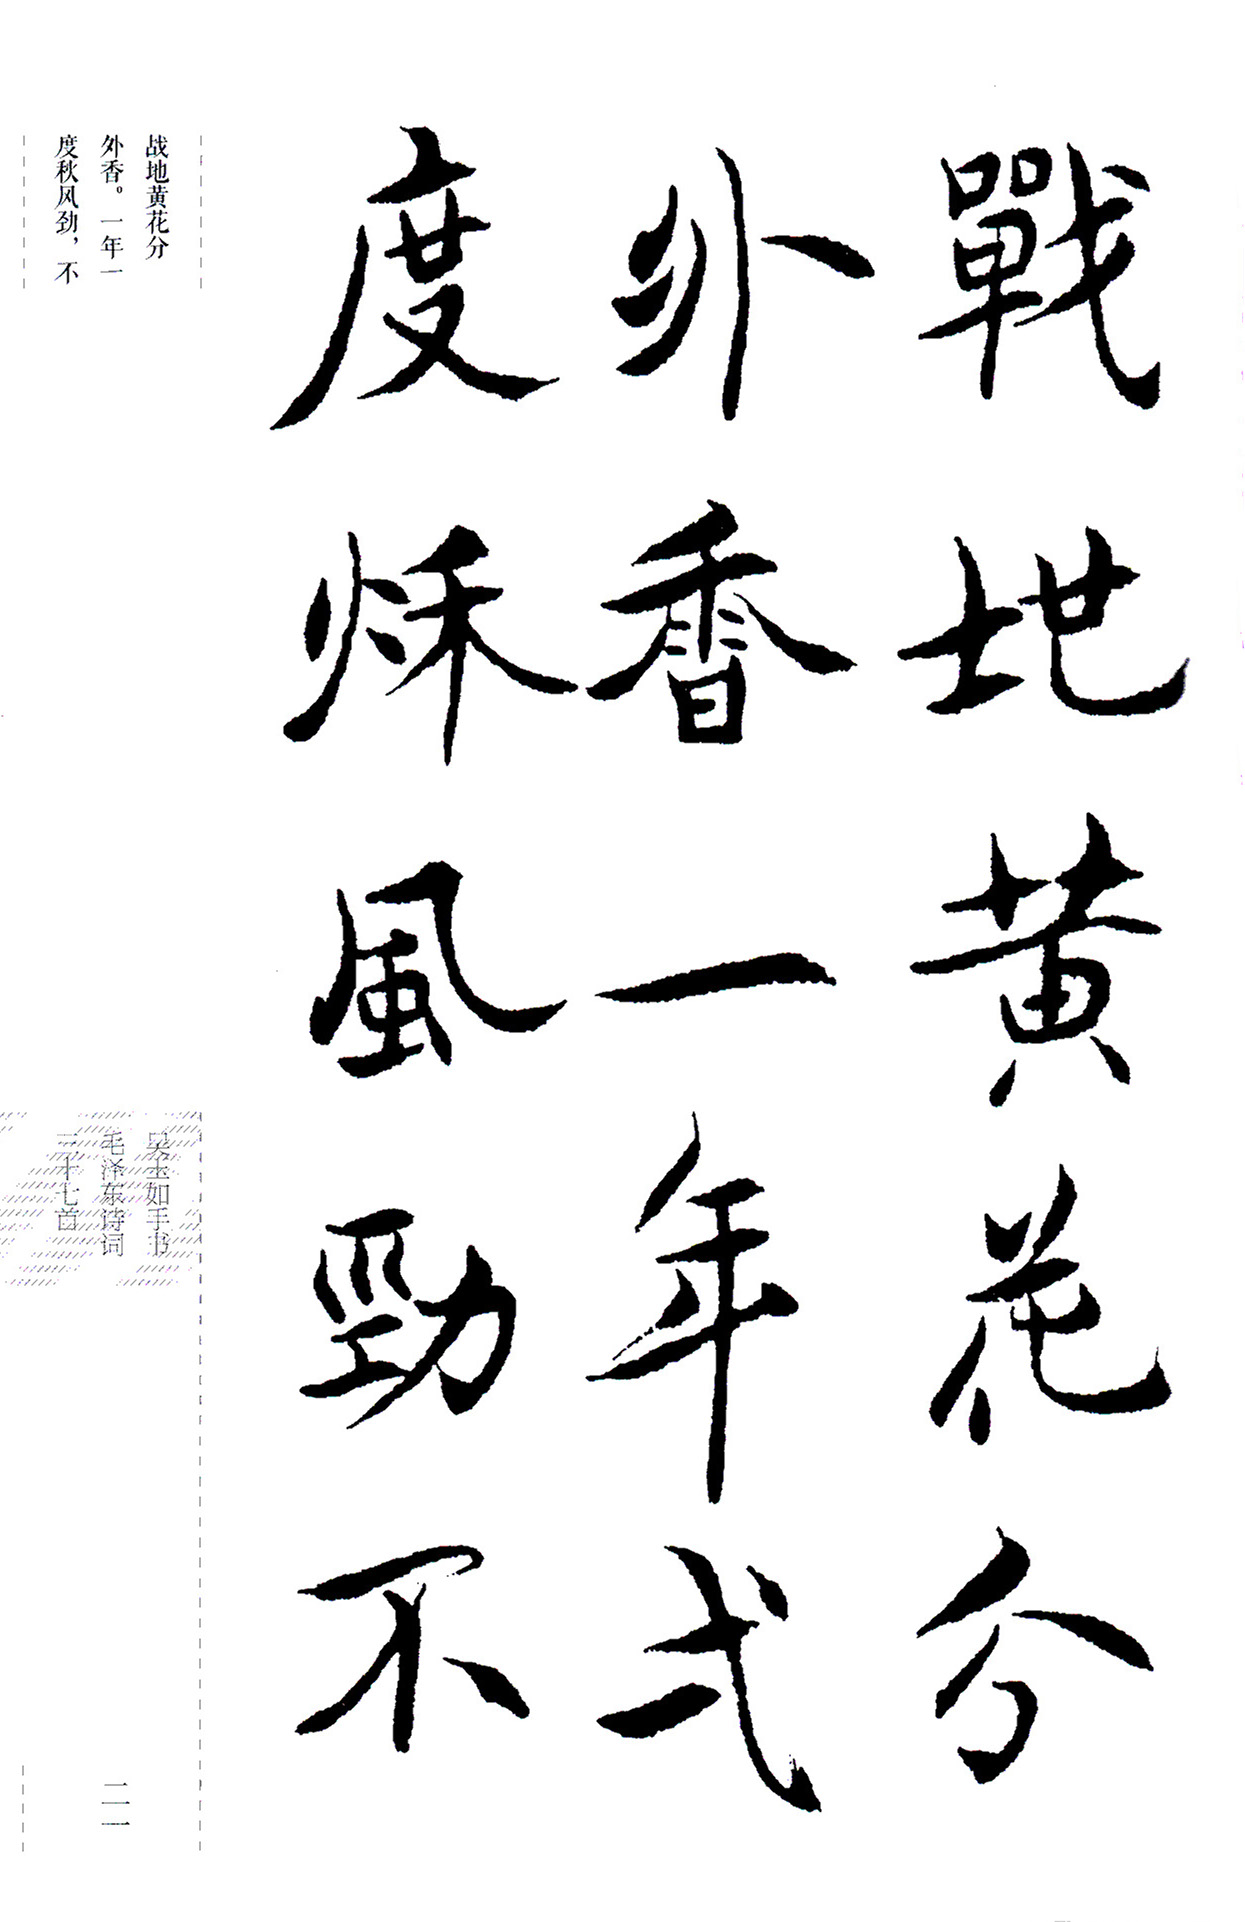 戰地黄花分
外香一年弌
度秌風勁不
战地黄花分
外香。一年一
度秋风劲，不
吴玉如手书
毛泽东诗词
三十七首
二一